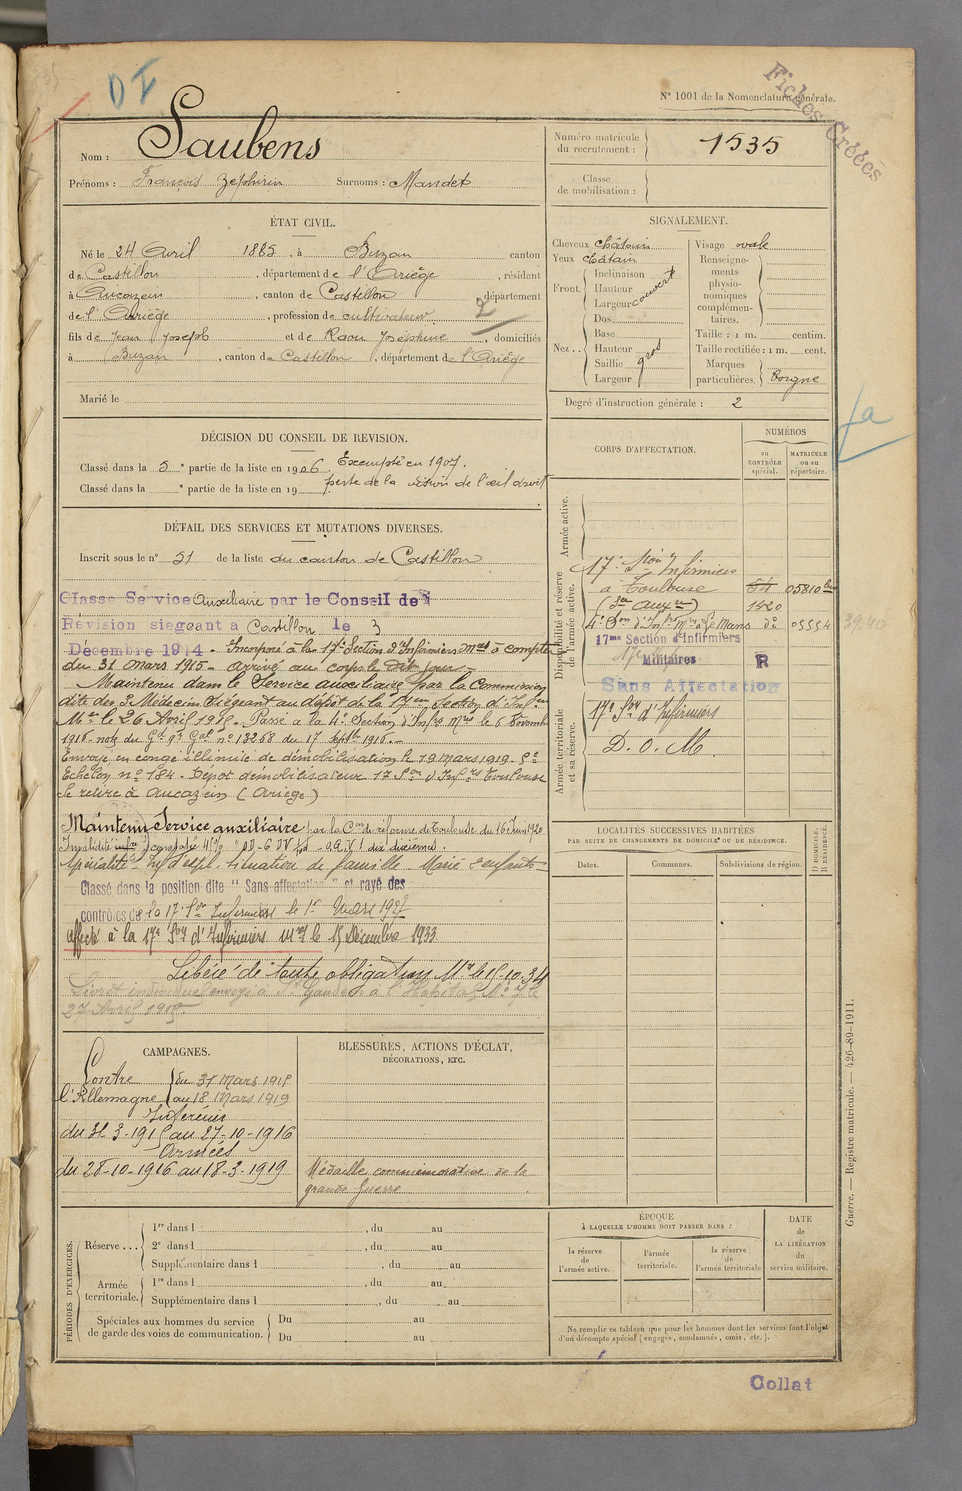 D I
N° 1001 de la Nomenclature générale.
Fiches Créées
Nom : Saubens
Prénoms : François Zéphirin Surnoms : Mandet
Numéro matricule du recrutement : 1535
Classe de mobilisation :
ÉTAT CIVIL.
Né le 24 Avril 1885, à Buzan canton
de Castillon, département de l'Ariège, résidant
à Aucazein, canton de Castillon département
de l'Ariège, profession de cultivateur
fils de Jean Joseph et de Raou Joséphine, domiciliés
à Buzan, canton de Castillon, département de l'Ariège
2
Marié le
SIGNALEMENT.
Cheveux châtain
Yeux châtain
Front. Inclinaison
Hauteur
Largeur
couvert
Nez.. Dos
Base
Hauteur
Saillie
Largeur
gros
Visage ovale
Renseignements physionomiques complémentaires.
Taille : 1 m. centim.
Taille rectifiée : 1 m. cent.
Marques particulières. Borgne
Degré d'instruction générale : 2
DÉCISION DU CONSEIL DE REVISION.
Classé dans la 5e partie de la liste en 1906. Exempté en 1907.
Classé dans la e partie de la liste en 19 perte de la vision de l'œil droit
DÉTAIL DES SERVICES ET MUTATIONS DIVERSES.
Inscrit sous le n° 51 de la liste du canton de Castillon
Classé Service Auxiliaire par le Conseil de
Révision siégeant à Castillon le 3
Décembre 1914. Incorporé à la 17e Section d'Infirmiers Mres à compter
du 31 mars 1915. Arrivé au corps le dit jour.
Maintenu dans le Service auxiliaire par la Commission
dite des 3 Médecins siégeant au dépôt de la 17e Section d'Inf.
Mre le 26 Avril 1915. Passé à la 4e Section d'Infrs Mres le 6
1916. note du Gd Qr Gal n° 13268 du 17 Septbre 1916.
Envoyé en congé illimité de démobilisation le 19 mars 1919. 5e
Echelon n° 184. Dépôt démobilisateur 17 Son d'Infrs Toulouse
Se retire à Aucazein (Ariège)
Maintenu Service auxiliaire par la Con de réforme de Toulouse du 16 Juin 1920
Spécialité situation de famille Marié enfants
Classé dans la position dite "Sans affectation" et rayé des
contrôles de la 17e Son Infirmiers le 1er Mars 1928
Affecté à la 17e Son d'Infirmiers Mres le 15 Décembre 1933
Libéré de toute obligation Mre le 15.10.34
Livret individuel envoyé à St Gaudens à l'Hôpital
27 Avril 1915.
CORPS D'AFFECTATION.
NUMÉROS
au CONTRÔLE spécial.
MATRICULE ou au répertoire.
Armée active.
Disponibilité et réserve de l'armée active.
17e Son Infirmiers
à Toulouse 64 05810
(Sce auxre) 1420
4e Son d'Infrs Mres Le Mans do 05554
3940
17me Section d'Infirmiers
Militaires R
Sans Affectation
Armée territoriale et sa réserve.
17e Son d'Infirmiers
D. O. M
LOCALITÉS SUCCESSIVES HABITÉES
PAR SUITE DE CHANGEMENTS DE DOMICILE OU DE RÉSIDENCE.
Dates. Communes. Subdivisions de région. D. DOMICILE. R. RÉSIDENCE.
CAMPAGNES.
Contre l'Allemagne du 31 Mars 1915
au 18 Mars 1919
Intérieur
du 31-3-1915 au 27-10-1916
Armées
du 28-10-1916 au 18-3-1919
BLESSURES, ACTIONS D'ÉCLAT,
DÉCORATIONS, ETC.
Médaille commémorative de la
grande Guerre
PÉRIODES D'EXERCICES.
Réserve... 1re dans l , du au
2e dans l , du au
Supplémentaire dans l , du au
Armée territoriale. 1re dans l , du au
Supplémentaire dans l , du au
Spéciales aux hommes du service de garde des voies de communication. Du au
Du au
ÉPOQUE
À LAQUELLE L'HOMME DOIT PASSER DANS :
la réserve de l'armée active.
l'armée territoriale.
la réserve de l'armée territoriale
DATE de LA LIBÉRATION du service militaire.
Ne remplir ce tableau que pour les hommes dont les services font l'objet
d'un décompte spécial (engagés, condamnés, omis, etc.).
Guerre. — Registre matricule. — 426-89-1911.
Collat